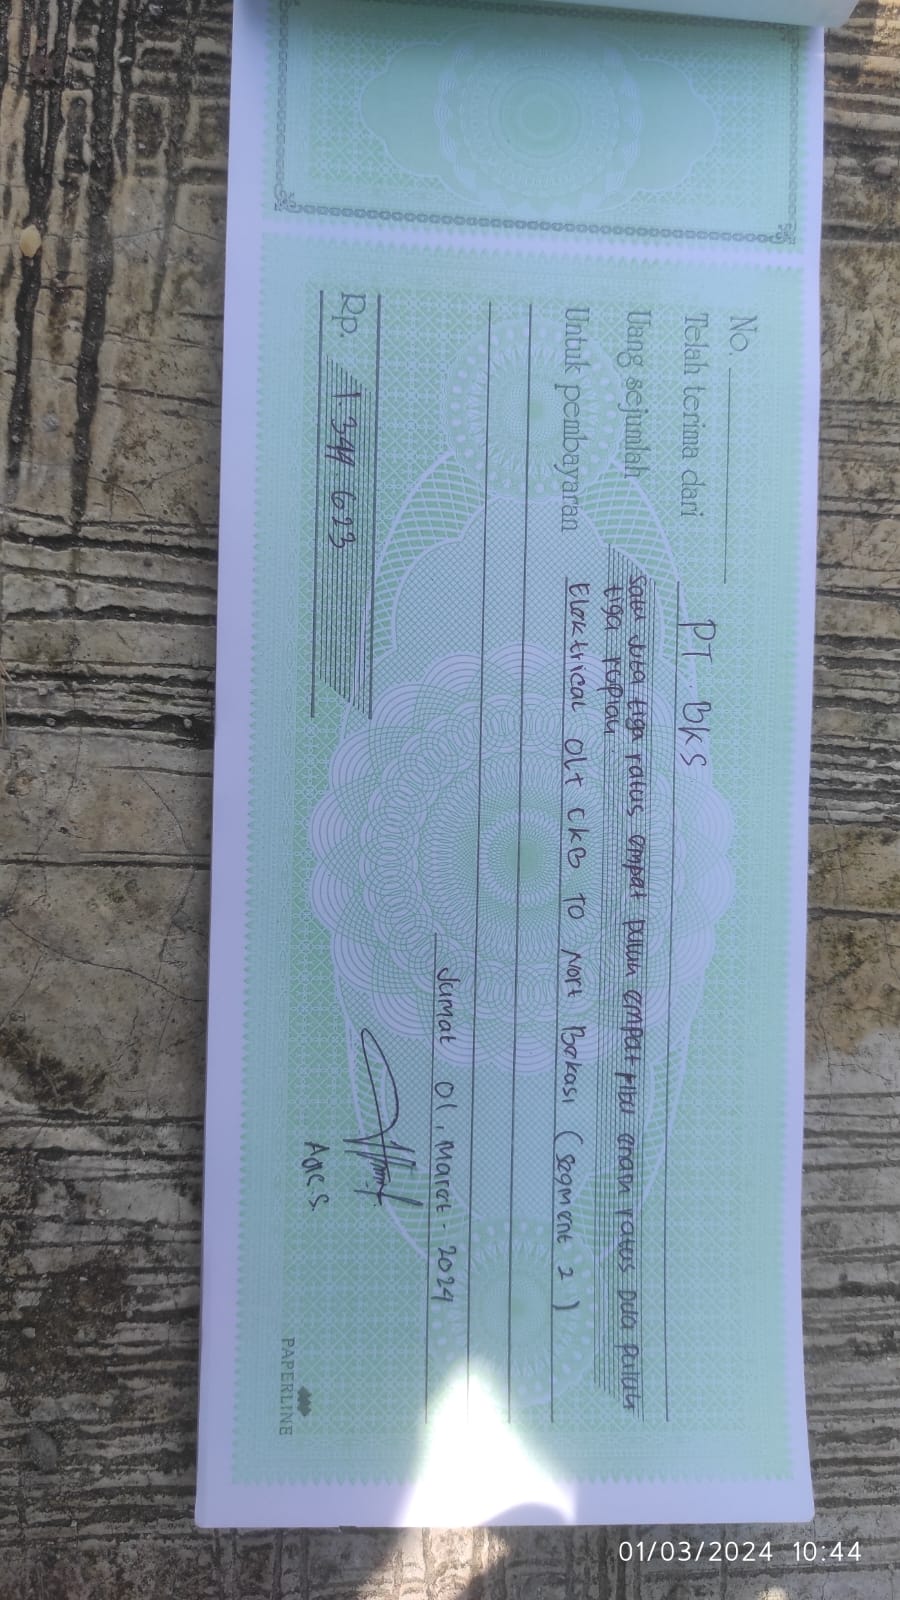 No.
Telah terima dari PT. BKS
Uang sejumlah Satu Juta tiga ratus empat puluh empat ribu enam ratus Dua puluh
tiga rupiah.
Untuk pembayaran Elektrical OLT CKB TO Nort Bekasi (Segment 2)
Jumat 01, Maret - 2024
Rp. 1 344 623
Ade.S.
PAPERLINE
01/03/2024 10:44